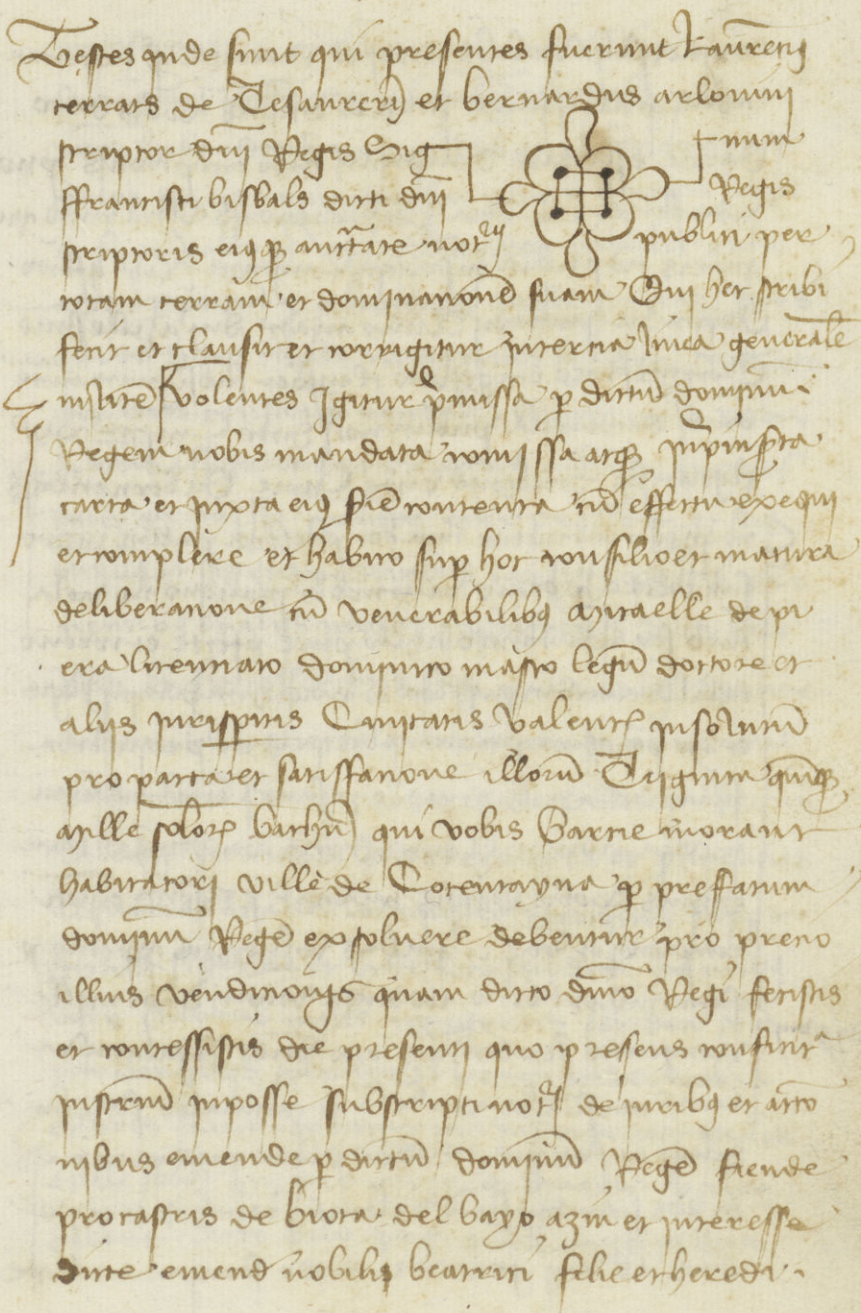 Testes inde sunt qui presentes fuerunt Laurencii
terrats de Tesaurerii et bernardus arlovini
scriptor dni Regis Sig num
ffrancisci bisbals dicti dni Regis
scriptoris eiusq auctate notrii publici per
totam terram et dominacione suam Qui hec scribi
fecit et clausit et corrigitur in tercia linea generale
Volentes Igitur pmissa p dictu dominum
Regem nobis mandata comissa atq in pinserta
carta et juxta eius contenta cu effectu exequi
et complere et habito sup hoc consilio et matura
deliberacione cu venerabilibus Micaelle de pi
era licenciato dominico masco legu doctore et
aliis jurisperitis Civitatis Valent in solutu
pro parata et satisffacione illoru Triginta quinq
Mille solor barchn qui vobis Garcie morant
habitatori ville de Cocentayna p preffatum
dominu Rege exsolvere debentur pro precio
illius vendicionis quam dicto dmo Regi fecistis
et concessistis die presenti quo presens conficit
instrm in posse subscripti not de juribus et accio
nibus emende p dictu dominu Rege fiende
pro castris de biota del bayo azin et interesse
dicte emend nobilis beatrici filie et heredi